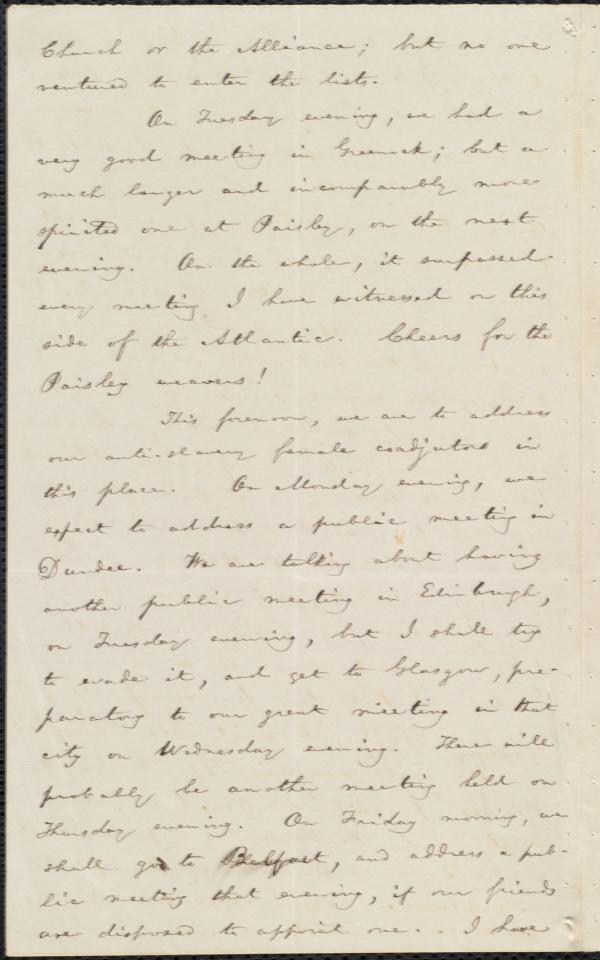 Church or the Alliance; but no one
ventured to enter the lists.
On Tuesday evening, we had a
very good meeting in Greenock; but a
much larger and incomparably more
spirited one at Paisley, on the next
evening. On the whole, it surpassed
every meeting I have witnessed on this
side of the Atlantic. Cheers for the
Paisley weavers!
This forenoon, we are to address
our anti-slavery female coadjutors in
this place. On Monday evening, we
expect to address a public meeting in
Dundee. We are talking about having
another public meeting in Edinburgh,
on Tuesday evening, but I shall try
to evade it, and get to Glasgow, pre-
paratory to our great meeting in that
city on Wednesday evening. There will
probably be another meeting held on
Thursday evening. On Friday morning, we
shall go to Belfast, and address a pub-
lic meeting that evening, if our friends
are disposed to appoint one. . I have